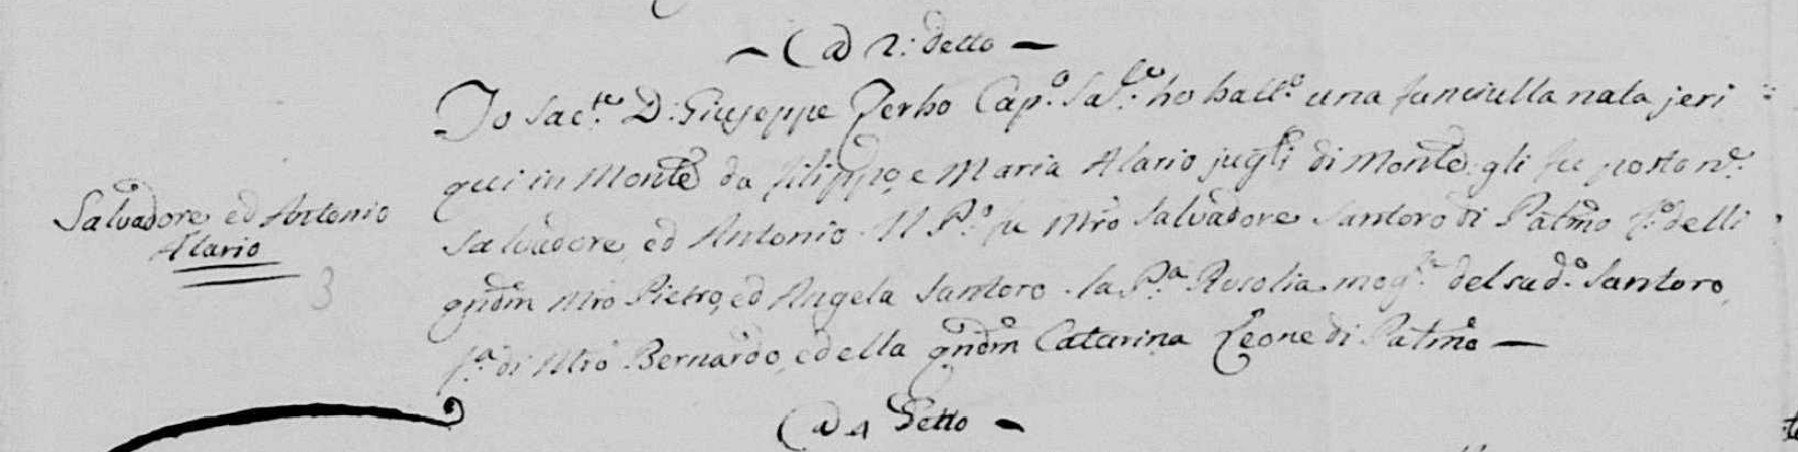 A di 2: detto
Io Sac.te D: Giuseppe Zerbo Cap.o Sac.le ho batt.o una fanciulla nata jeri
qui in Monte da Filippo, e Maria Alario jugli di Monte: gli fu posto n.e
Salvadore, ed Antonio. Il P.o fu Mro Salvadore Santoro di Palmo f.o delli
qndm Mro Pietro, ed Angela Santoro. la P.a Rosolia mog.e del sud.o Santoro,
Salvadore ed Antonio
Alario
3
f.a di Mro Bernardo, e della qndm Catarina Leone di Palmo
A di 4 detto